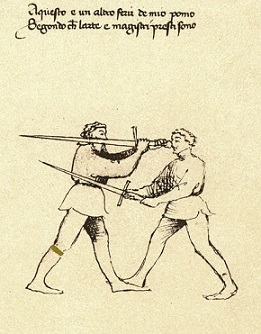 Aquesto e un altro ferir de mio pomo
Segondo che larte e magistri presti sono